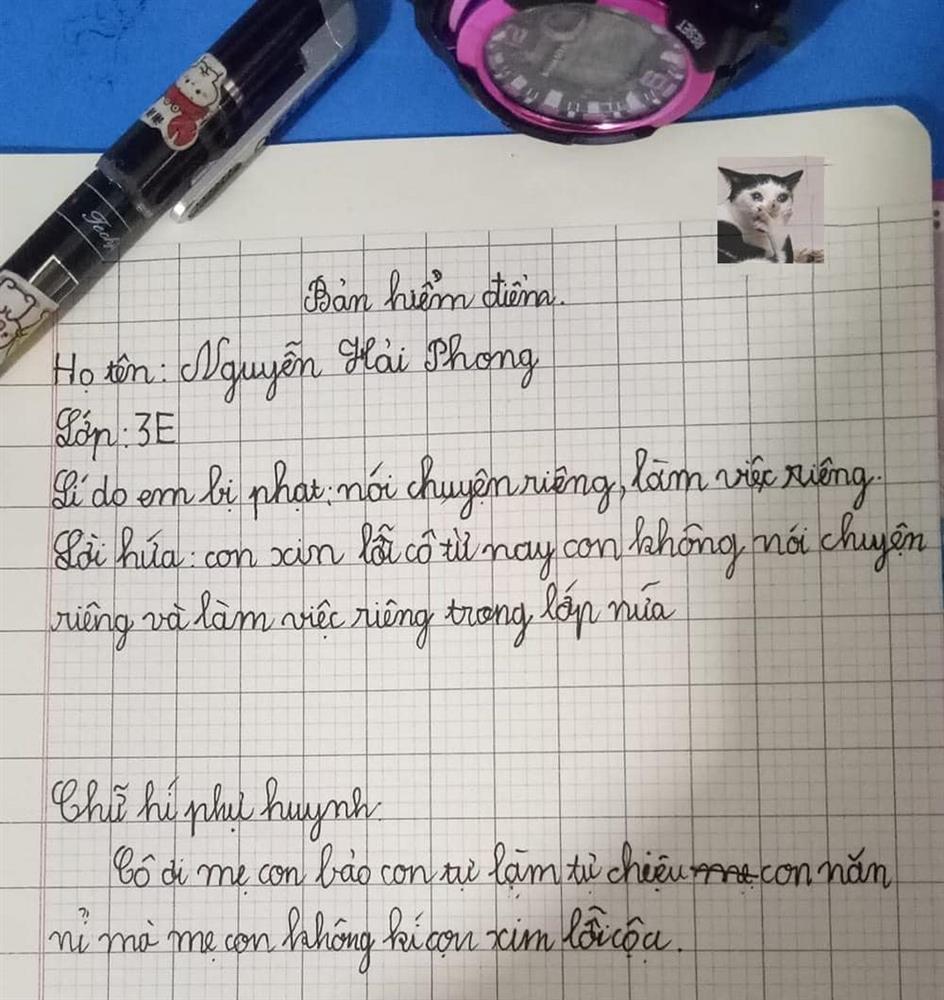 RESET
Tech
Bản hiểm điểm.
Họ tên: Nguyễn Hải Phong
Lớp: 3E
Lí do em bị phạt: nói chuyện riêng, làm việc riêng.
Lời hứa: con xin lỗi cô từ nay con không nói chuyện
riêng và làm việc riêng trong lớp nứa
Chữ hí phụ huynh:
Cô di mẹ con bảo con tự làm tự chiệu mẹ con năn
nỉ mà mẹ con không kí cọn xin lỗi cộ ạ.